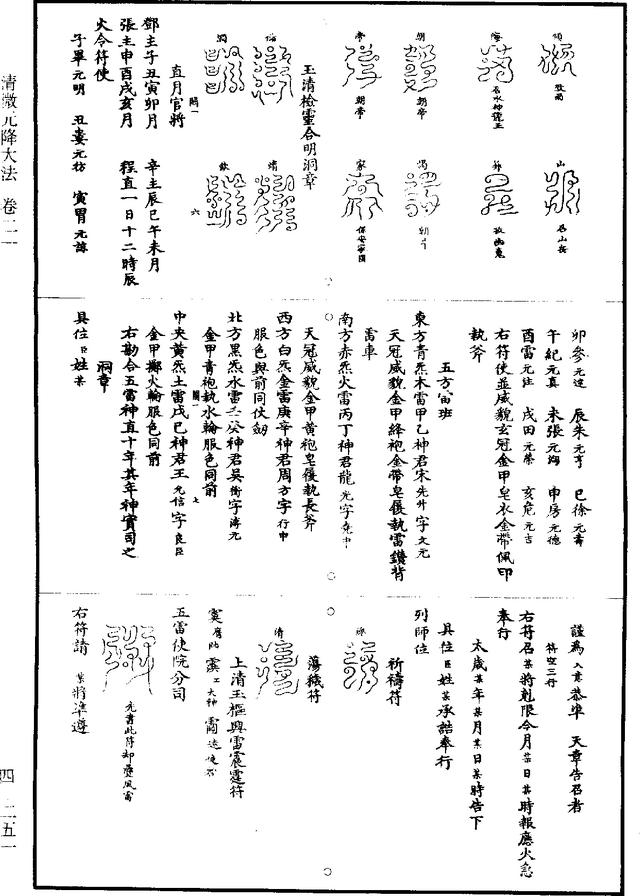 清微元降大法 卷二一
四—二五一
致雨
名山岳
名水神龍王
朝帝
朝帝
保安家國
玉清檢靈合明洞章
直月官將
鄧主子丑寅卯月 辛主辰巳午未月
張主申酉戌亥月 程直一日十二時辰
火令符使
子畢元明 丑婁元枋 寅胃元諱
卯參元達 辰朱元亨 巳徐元壽
午紀元真 未張元炯 申房元德
酉雷元注 戌田元榮 亥危元吉
右符使並威貌玄冠金甲皂衣金帶佩印
執斧
五方雷班
東方青炁木雷甲乙神君宋先升字文元
天冠威貌金甲絳袍金帶皂履執雷鑽背
雷車
南方赤炁火雷丙丁神君龍光字堯中
天冠威貌金甲黃袍皂履執長斧
西方白炁金雷庚辛神君周方字行中
服色與前同仗劒
北方黑炁水雷壬癸神君吳衝字海元
金甲青袍執水輪服色同前
中央黃炁土雷戊巳神君王允信字良臣
金甲擲火輪服色同前
右勘合五雷神直十年其年神實司之
洞章
具位臣姓某
謹為入意恭準 天章告召者
符空三行
右符召某將剋限今月某日某時報應火急
奉行
太歲某年某月某日某時告下
具位臣姓某承誥奉行
列師位
祈禱符
蕩穢符
上清玉樞興雷震霆符
五雷使院分司
先書此符却疊風雷
右符請 某將準遵